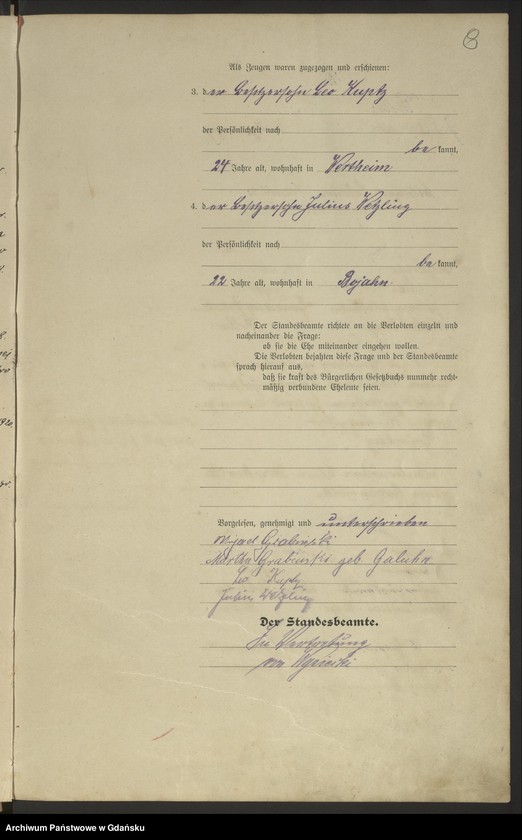 8
Als Zeugen waren zugezogen und erschienen:
3. der Besitzersohn Leo Kuptz
der Persönlichkeit nach
be kannt,
24 Jahre alt, wohnhaft in Wertheim
4. der Besitzersohn Julius Wetzling
der Persönlichkeit nach
be kannt,
22 Jahre alt, wohnhaft in Bojahn.
Der Standesbeamte richtete an die Verlobten einzeln und
nacheinander die Frage:
ob sie die Ehe miteinander eingehen wollen.
Die Verlobten bejahten diese Frage und der Standesbeamte
sprach hierauf aus,
daß sie kraft des Bürgerlichen Gesetzbuchs nunmehr recht-
mäßig verbundene Eheleute seien.
Vorgelesen, genehmigt und unterschrieben
Grabinski
Martha Grabinski geb Galuhn
Leo Kuptz
Julius Wetzling
Der Standesbeamte.
In Vertretung
von
Archiwum Państwowe w Gdańsku